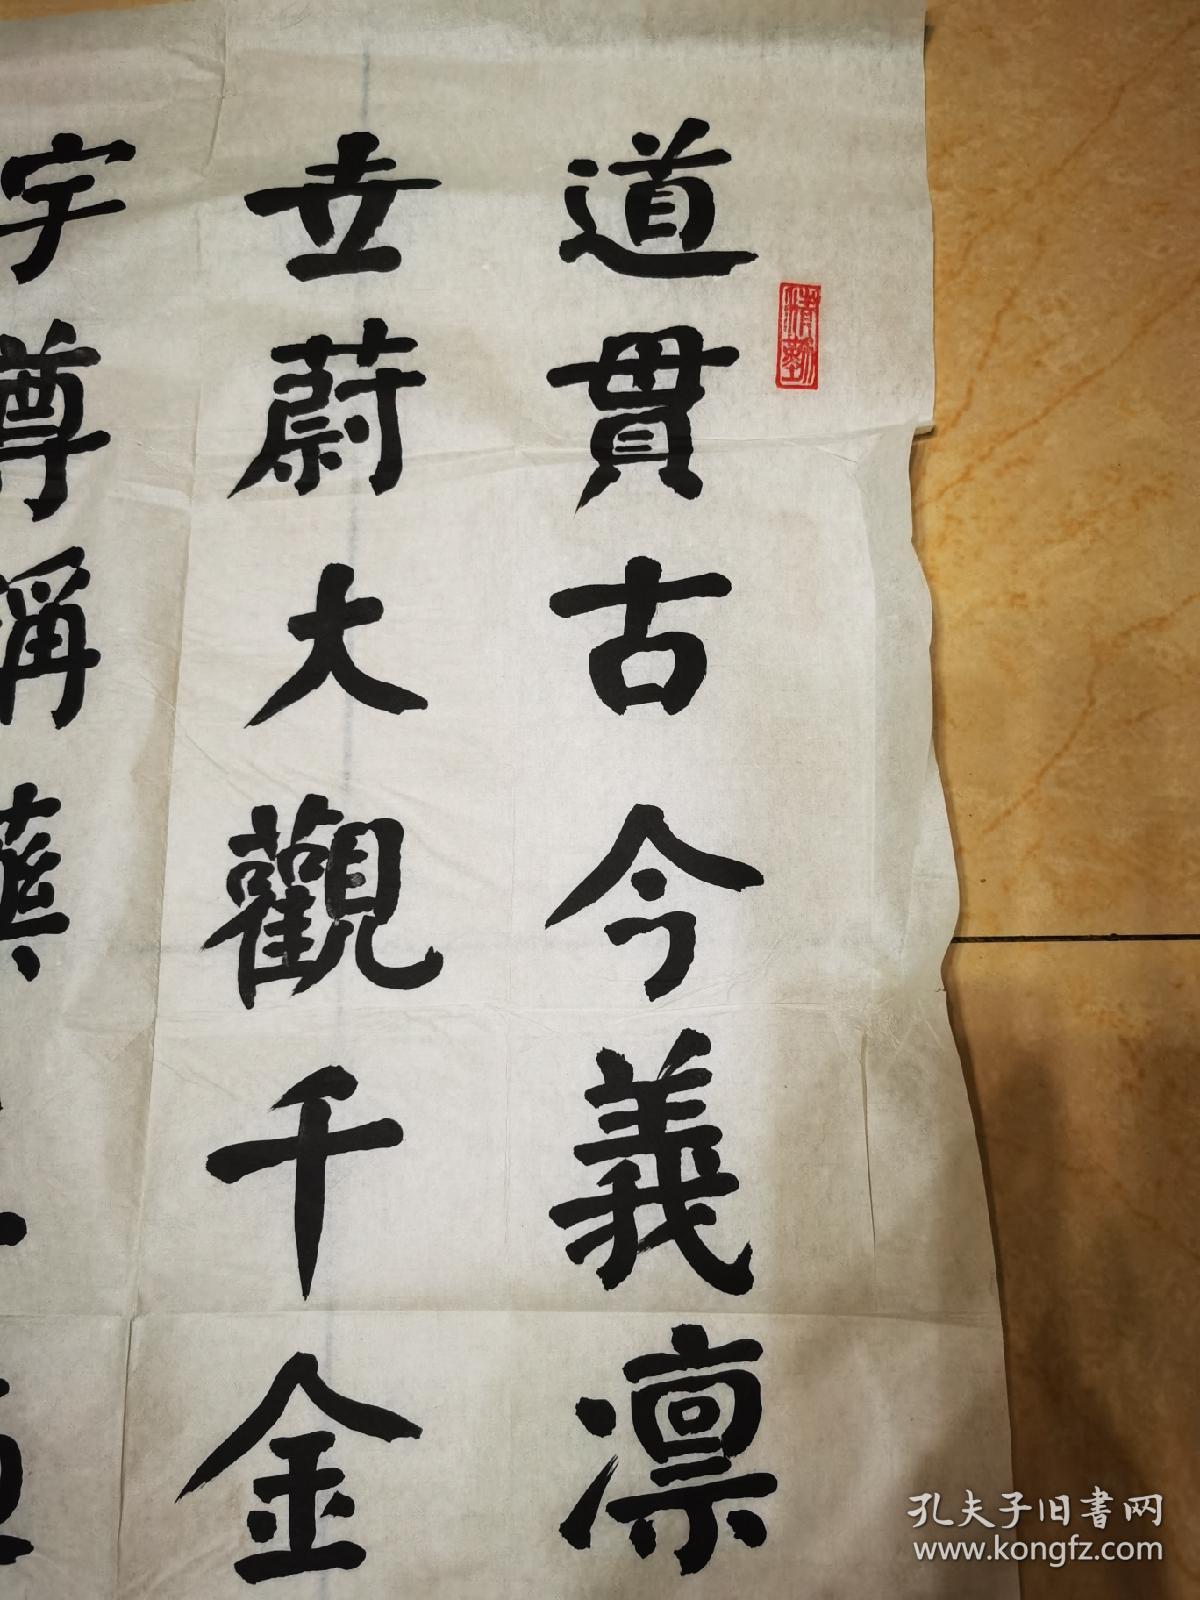 道貫古今義凛
世蔚大觀千金
字尊稱
清勤
孔夫子旧書网
www.kongfz.com